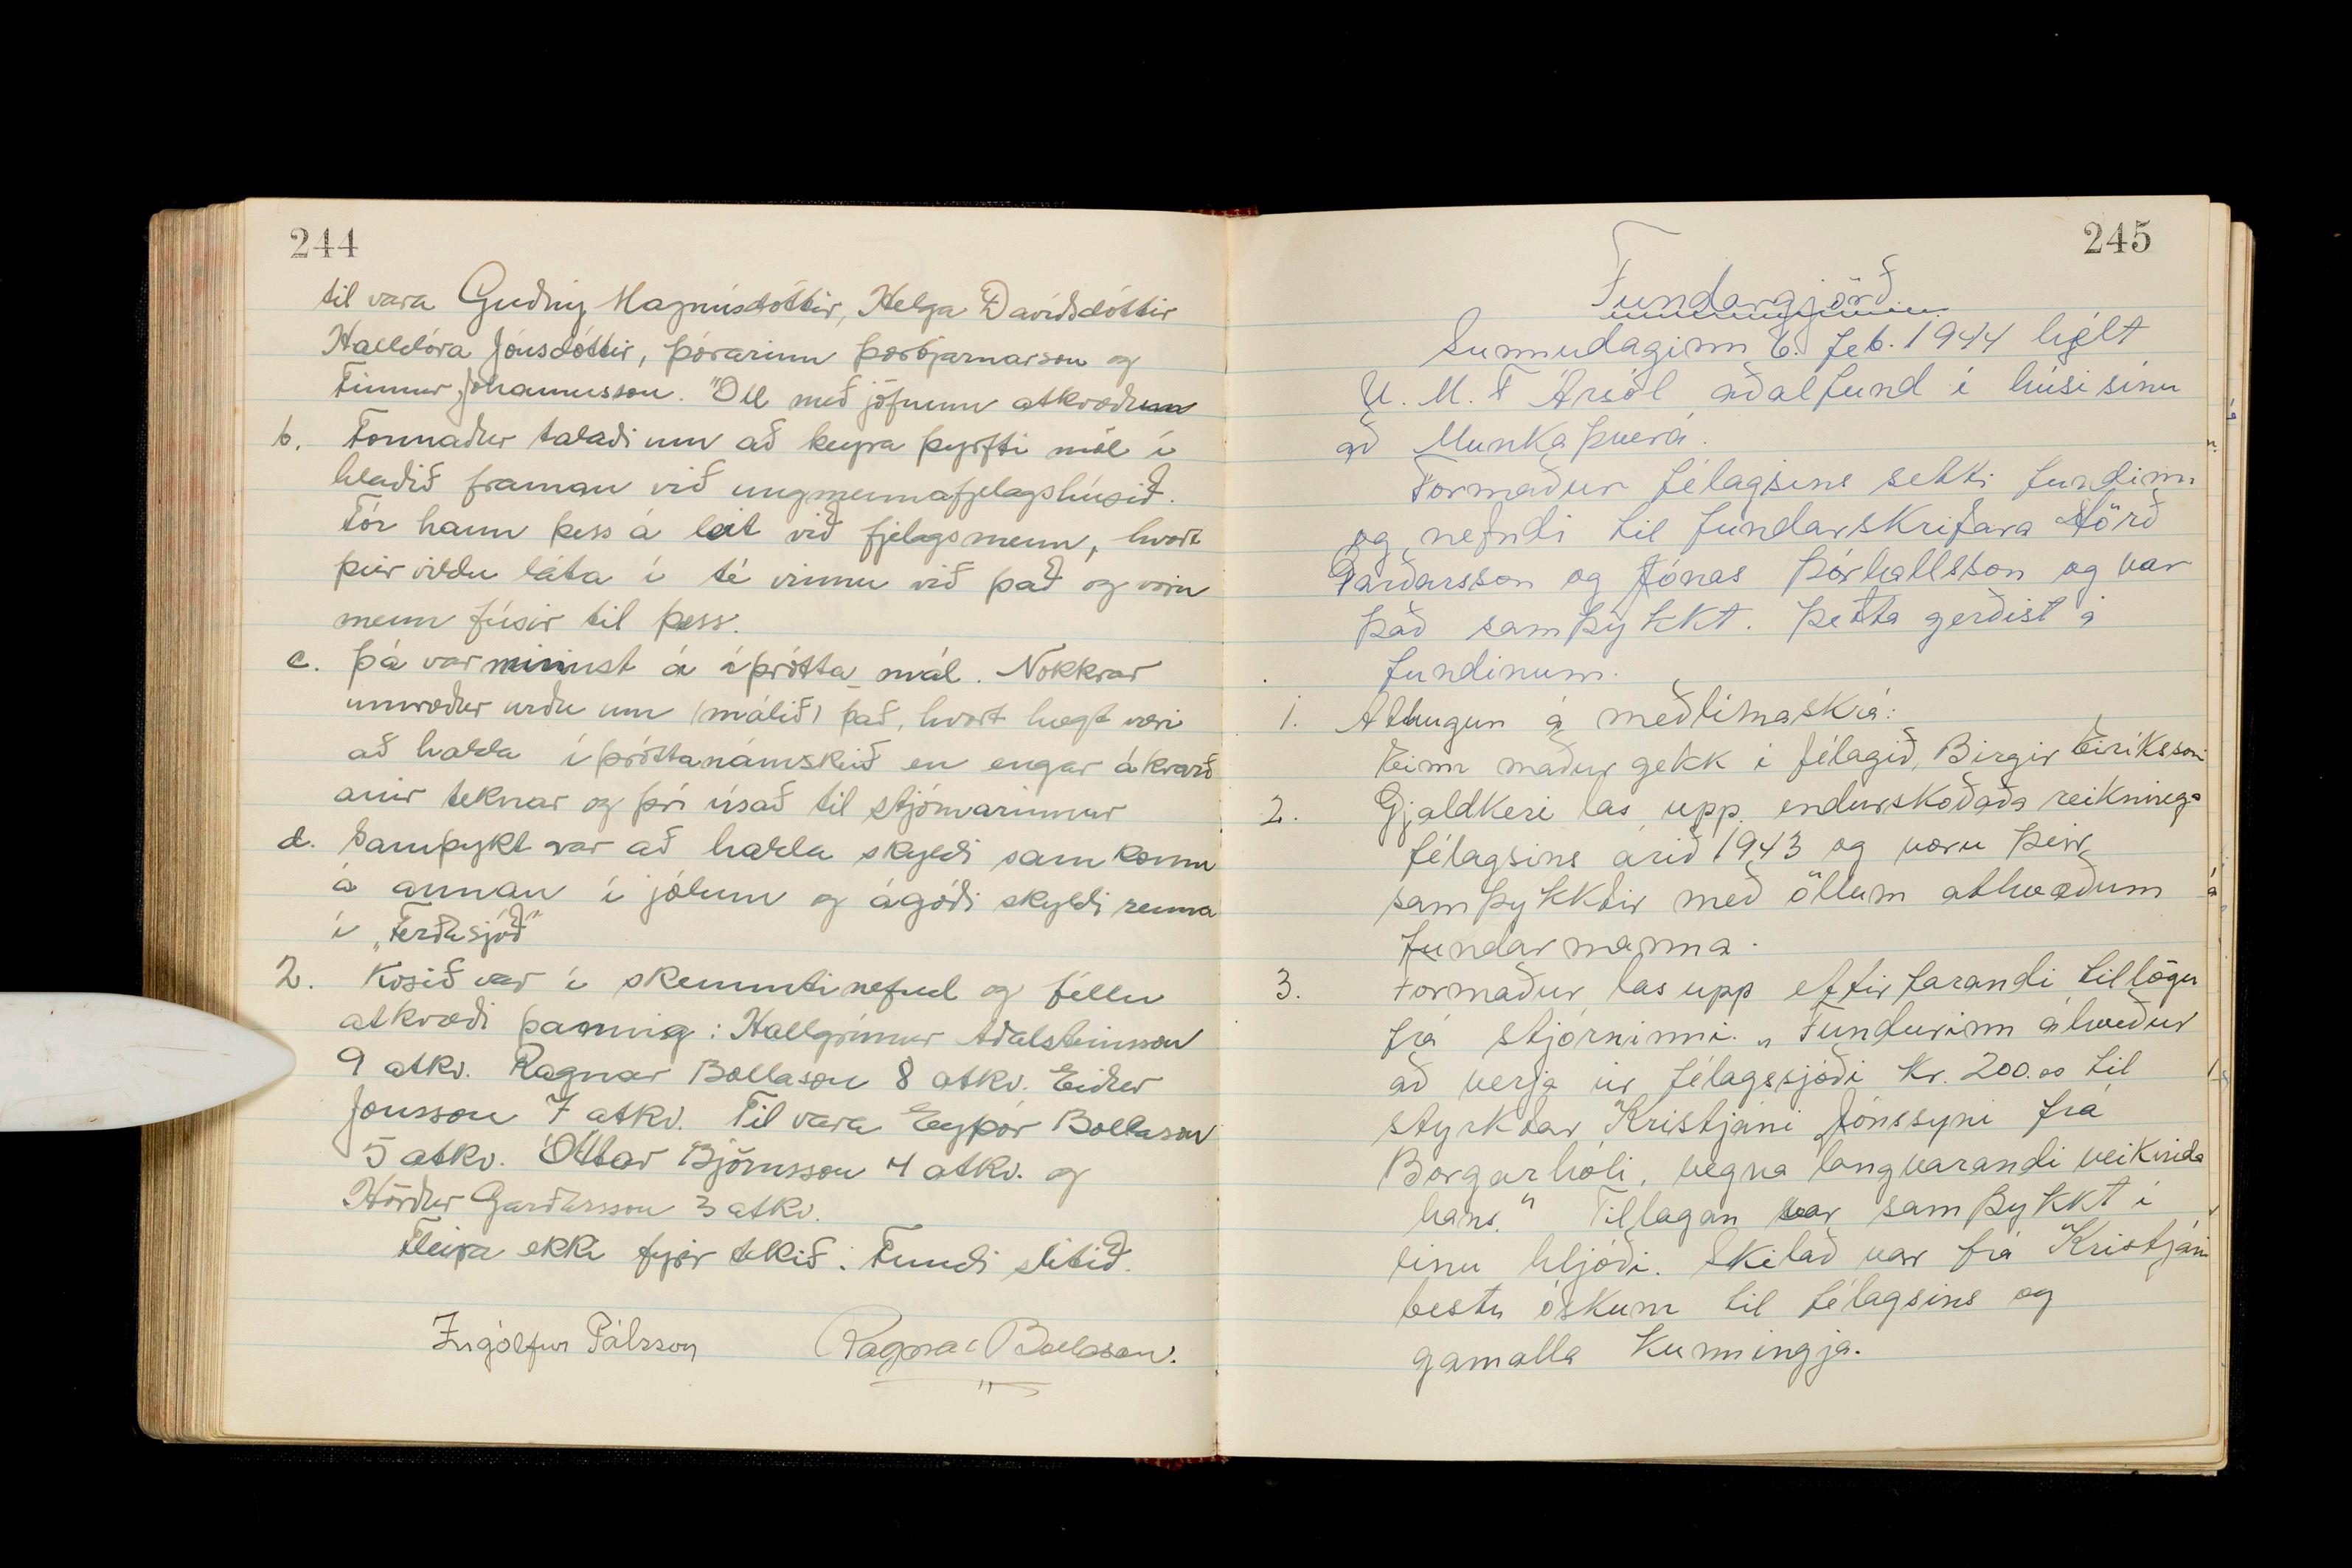 244
til vara Guðný Magnúsdóttir, Helga Davíðsdóttir
Halldóra Jónsdóttir, þórarinn þorbjarnarson og
Finnur Jóhannesson. Öll með jöfnum atkvæðum
b. Formaður talaði um að keyra þyrfti möl í
hlaðið framan við ungmennafjelagshúsið.
Fór hann þess á leit við fjelagsmenn, hvort
þeir vildu láta í té vinnu við það og voru
menn fúsir til þess.
c. þá var minnst á íþrótta mál. Nokkrar
umræður urðu um (málið) það, hvort hægt væri
að halda íþróttanámskeið en engar ákvarð
anir teknar og því vísað til stjórnarinnar
d. Samþykt var að halda skyldi samkomu
á annan í jólum og ágóði skyldi renna
í „Ferðasjóð"
2. Kosið var í skemmtinefnd og féllu
atkvæði þannig: Hallgrímur Aðalsteinsson
9 atkv. Ragnar Bollason 8 atkv. Eiður
Jónsson 7 atkv. Til vara Eyþór Bollason
5 atkv. Óttar Björnsson 4 atkv. og
Hörður Garðarsson 3 atkv.
Fleira ekki fyrir tekið. Fundi slitið.
Ingólfur Pálsson Ragnar Bollason.
245
Fundargjörð
Sunnudaginn 6. feb. 1944 hélt
U. M. F Ársól aðalfund í húsi sínu
að Munkaþverá.
Formaður félagsins setti fundinn
og nefndi til fundarskrifara Hörð
Garðarsson og Jónas Þórhallsson og var
það samþykkt. Þetta gerðist á
fundinum.
1. Athugun á meðlimaskrá:
Einn maður gekk í félagið, Birgir Eiríksson
2. Gjaldkeri las upp endurskoðaða reikninga
félagsins árið 1943 og voru þeir
samþykktir með öllum atkvæðum
fundarmanna.
3. Formaður las upp eftirfarandi tillögu
frá stjórninni. „Fundurinn ákveður
að verja úr félagssjóði Kr. 200.00 til
styrktar Kristjáni Jónssyni frá
Borgarhóli, vegna langvarandi veikinda
hans." Tillagan var samþykkt í
einu hljóði. Skilað var frá Kristjáni
bestu óskum til félagsins og
gamalla kunningja.